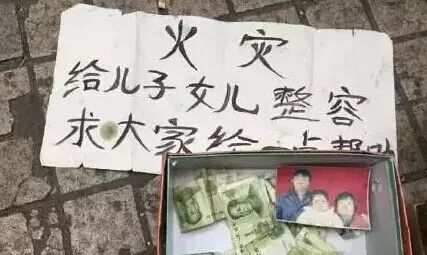 火灾
给儿子女儿整容
求大家给一点帮